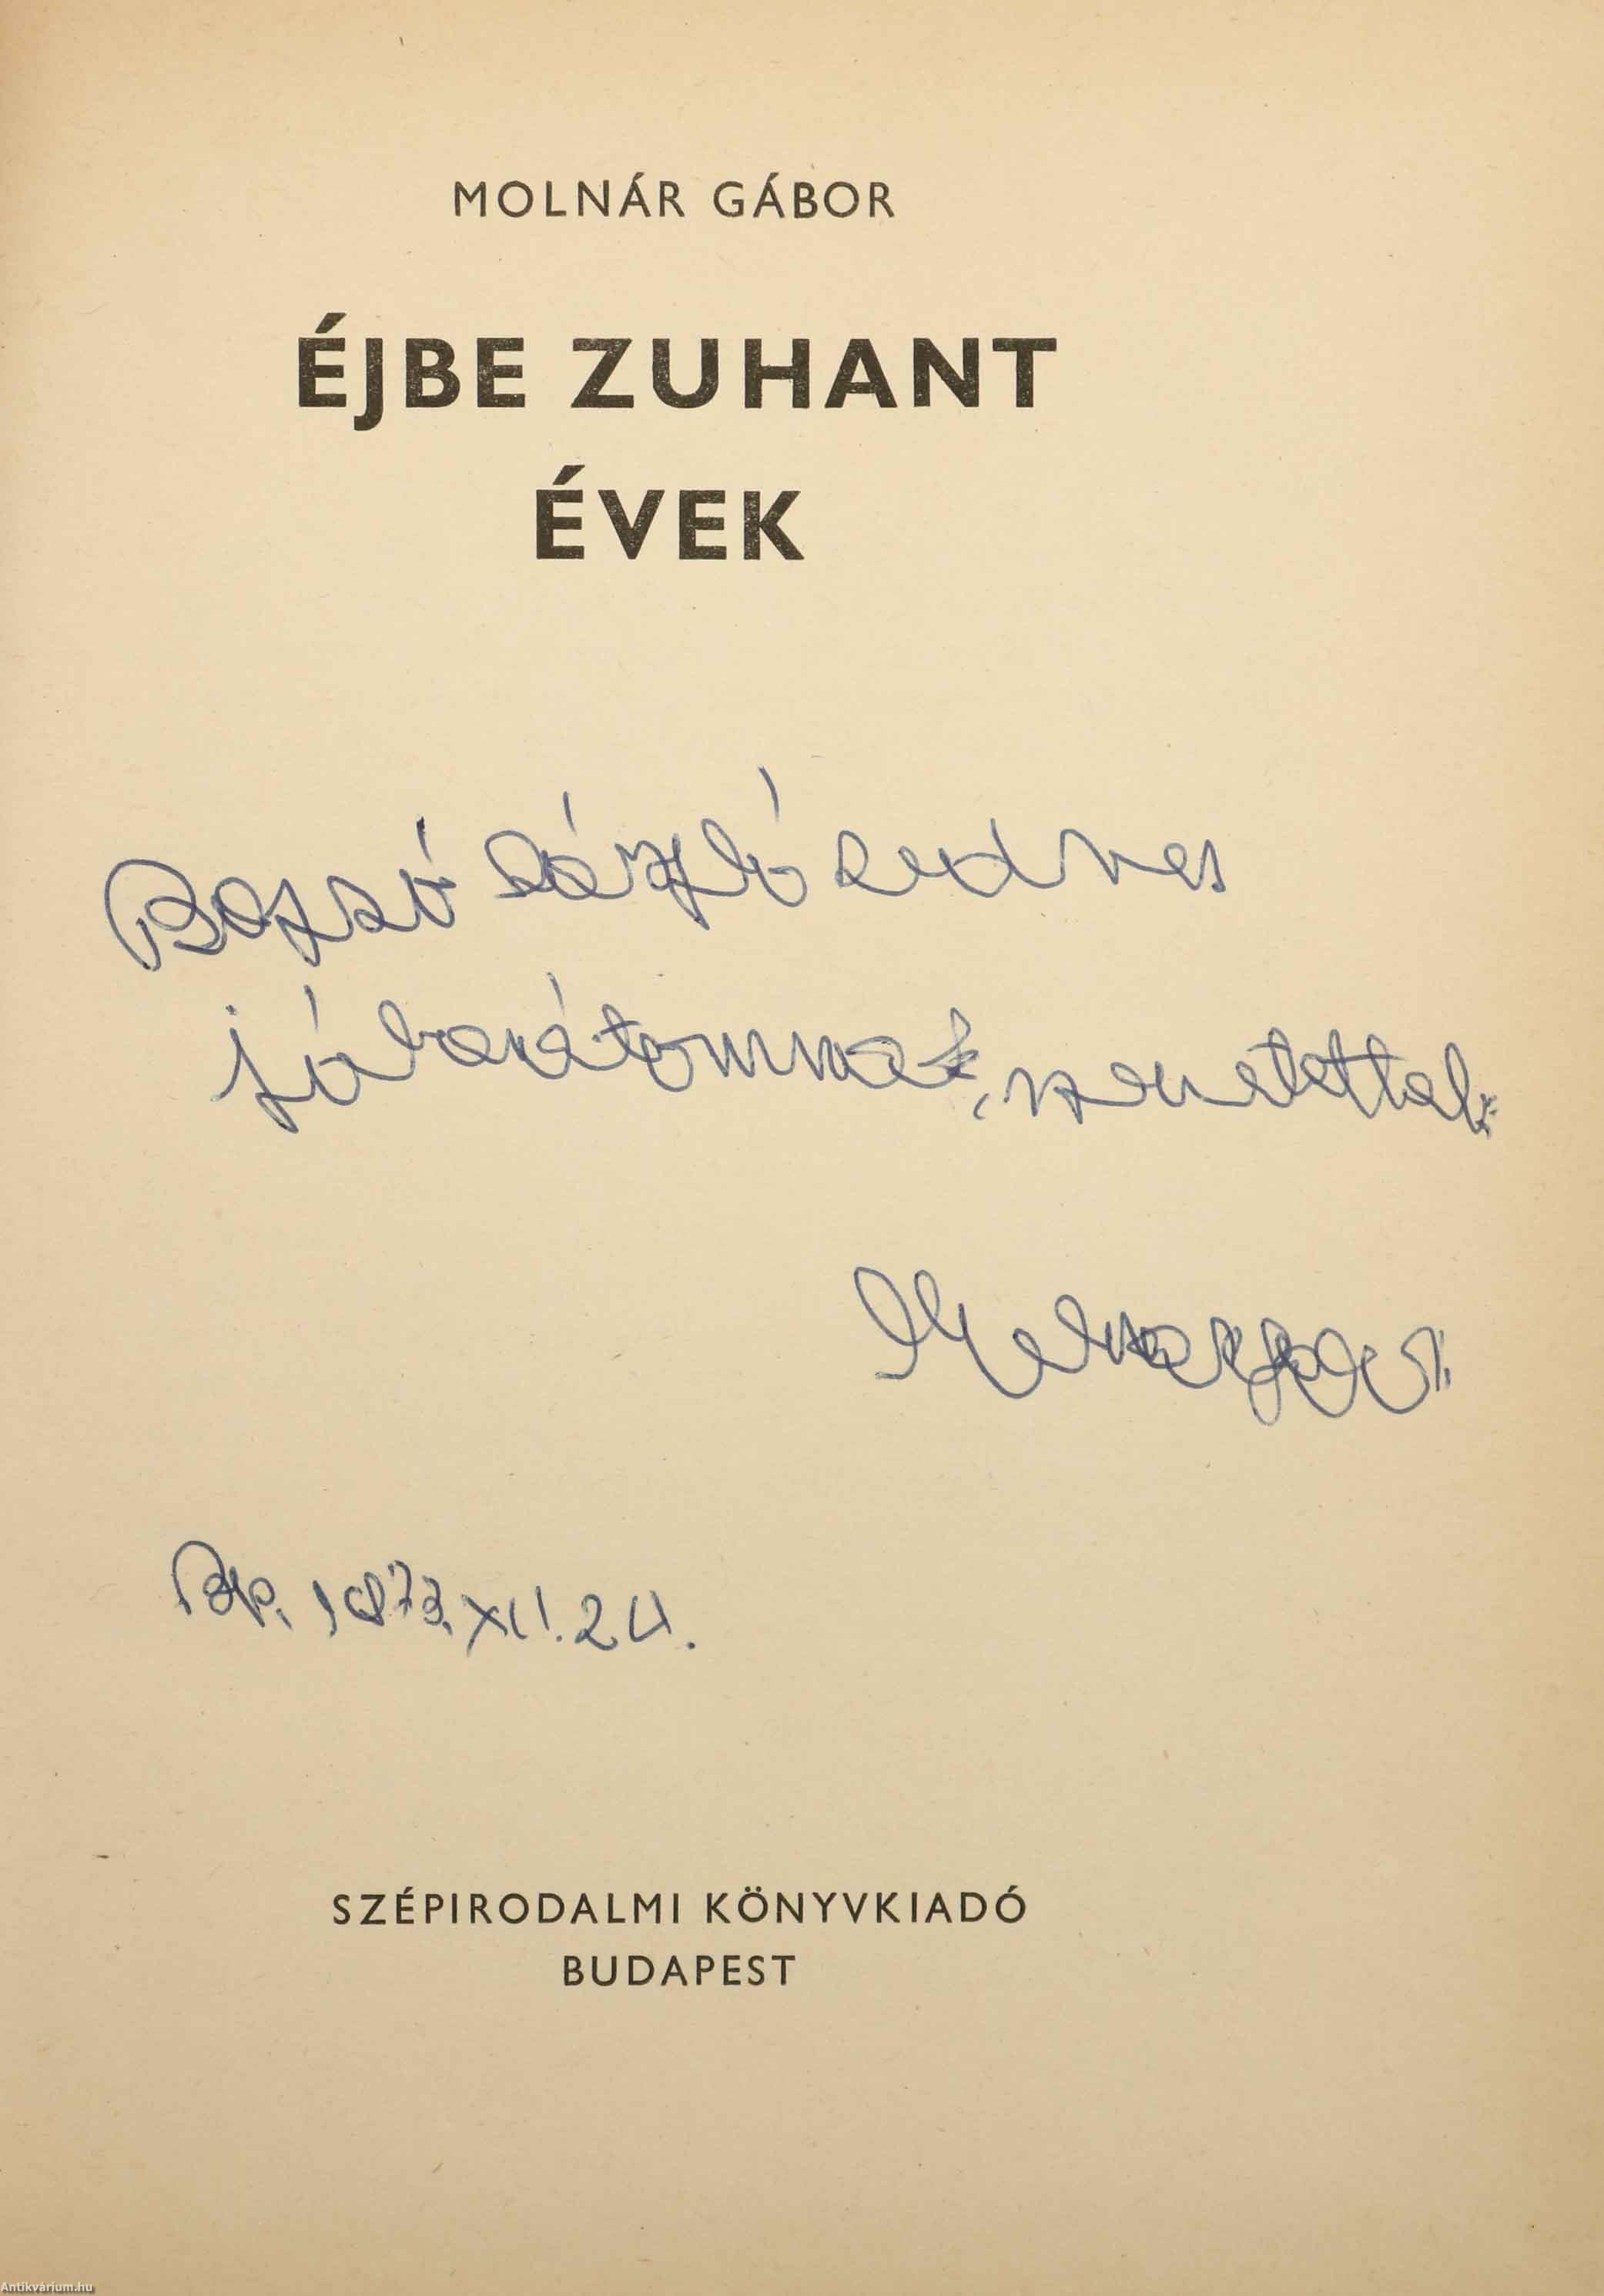 MOLNÁR GÁBOR
ÉJBE ZUHANT
ÉVEK
László kedves
jóbarátomnak, szeretettel:
Molnár Gábor
Bp. 1973. XII. 24.
SZÉPIRODALMI KÖNYVKIADÓ
BUDAPEST
Antikvárium.hu